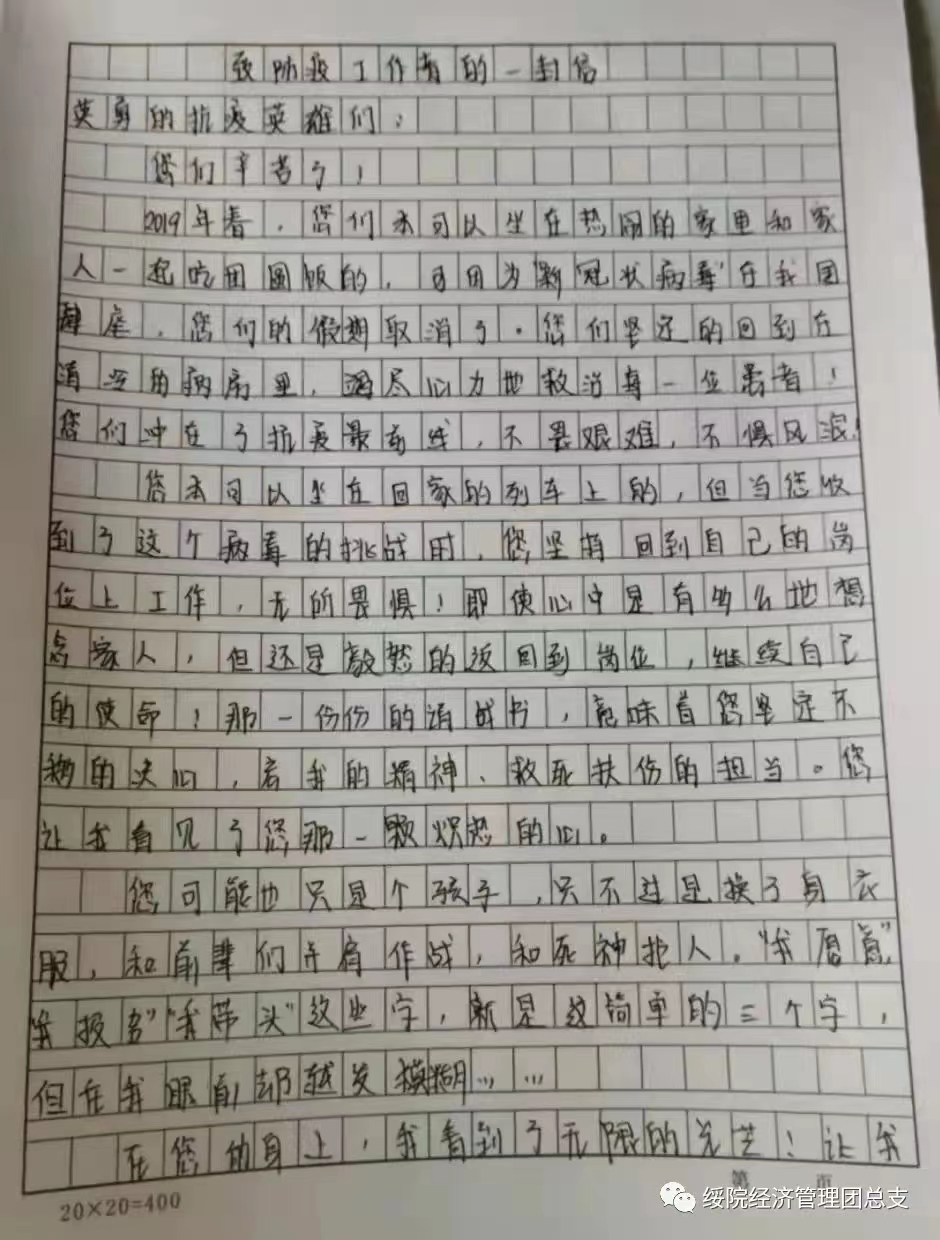 致防疫工作者的一封信
英勇的抗疫英雄们：
您们辛苦了！
2019年春，您们本可以坐在热闹的家里和家
人一起吃团圆饭的，可因为"新冠状病毒"在我国
肆虐，您们的假期取消了。您们坚定的回到在
消沉的病房里，竭尽心力地救治每一位患者！
您们冲在了抗疫最前线，不畏艰难，不惧风浪！
您本可以坐在回家的列车上的，但当您收
到了这个病毒的挑战时，您坚持回到自己的岗
位上工作，无所畏惧！即使心中是有多么地想
念家人，但还是毅然的返回到岗位，继续自己
的使命！那一份份的请战书，意味着您坚定不
移的决心，忘我的精神、救死扶伤的担当。您
让我看见了您那一颗炽热的心。
您可能也只是个孩子，只不过是换了身衣
服，和前辈们并肩作战，和死神抢人。"我愿意"
"我报名""我带头"这些字，就是这简单的三个字，
但在我眼前却越发模糊……
在您的身上，我看到了无限的光芒！让我
20×20=400
第 页
绥院经济管理团总支